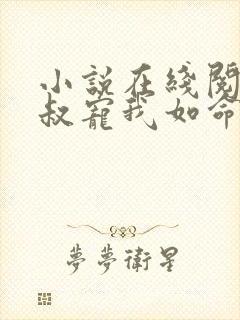 小説在綫閱
叔寵我如命
夢夢衛星